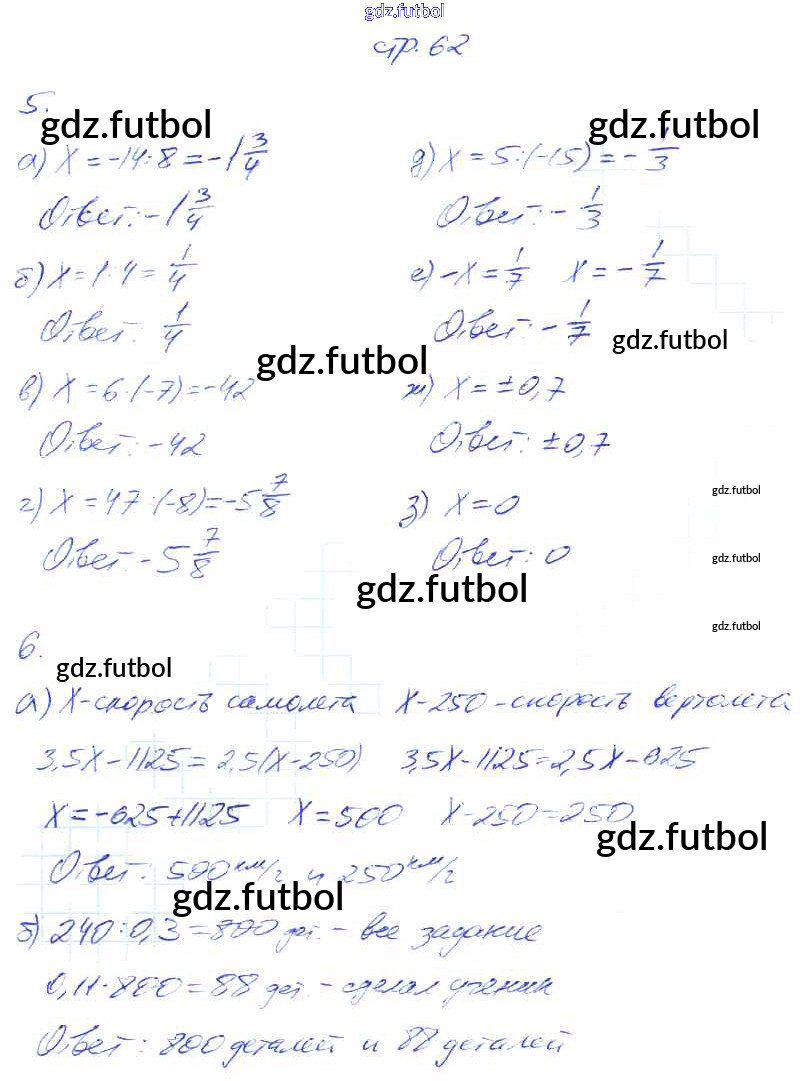 gdz.futbol
стр. 62
5.
gdz.futbol
gdz.futbol
а) X = -14:8 = -1 3/4
Ответ: -1 3/4
б) X = 1:4 = 1/4
Ответ: 1/4
gdz.futbol
в) X = 6·(-7) = -42
Ответ: -42
г) X = 47:(-8) = -5 7/8
Ответ: -5 7/8
д) X = 5:(-15) = -1/3
Ответ: -1/3
е) -X = 1/7 X = -1/7
Ответ: -1/7
gdz.futbol
ж) X = ±0,7
Ответ: ±0,7
gdz.futbol
з) X = 0
Ответ: 0
gdz.futbol
gdz.futbol
gdz.futbol
6.
gdz.futbol
а) X - скорость самолета X-250 - скорость вертолета
3,5X-1125 = 2,5(X-250) 3,5X-1125 = 2,5X-625
X = -625+1125 X = 500 X-250 = 250
gdz.futbol
Ответ: 500 км/г и 250 км/г
gdz.futbol
б) 240:0,3 = 800 дет. - все задание
0,11·800 = 88 дет. - сделал ученик
Ответ: 800 деталей и 88 деталей